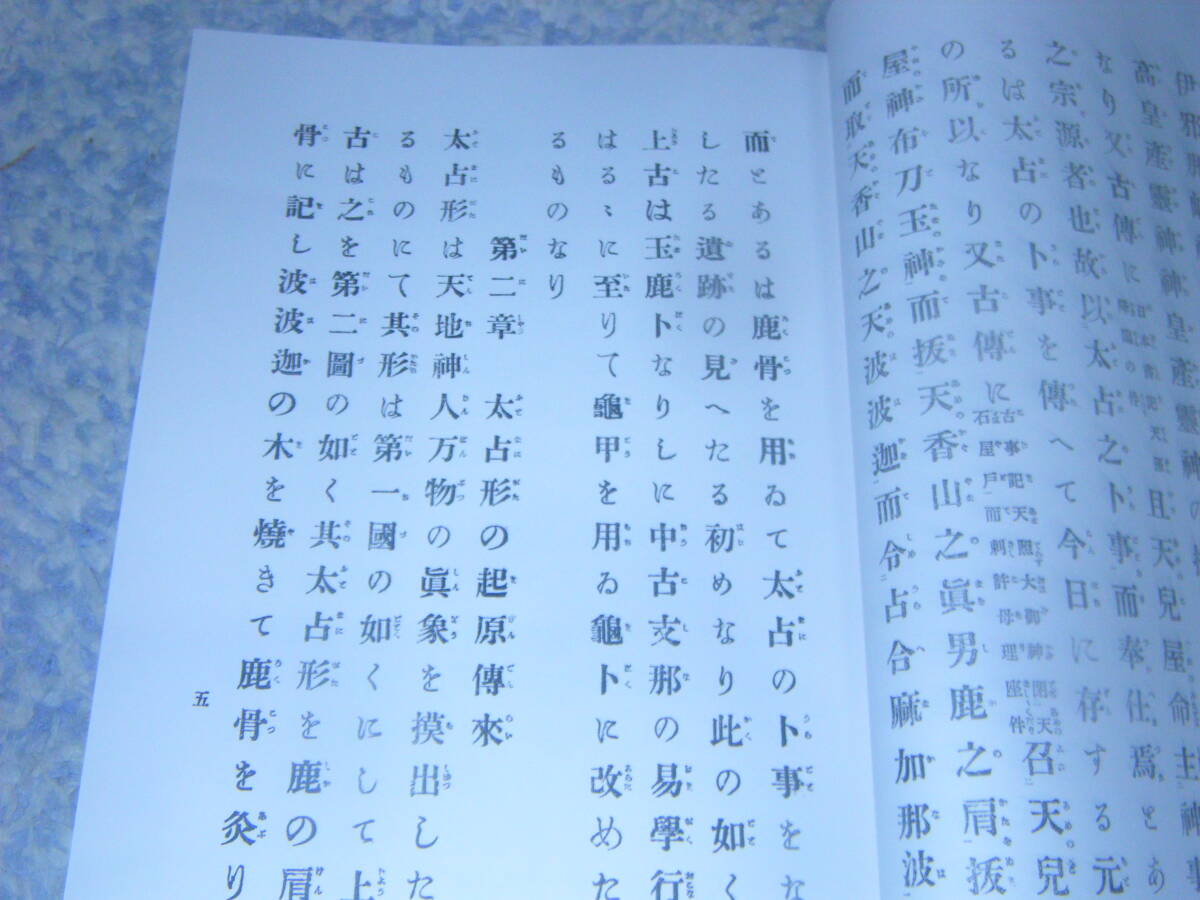 伊邪那
高皇產靈神神皇產靈神の
なり又古傳に且天兒屋命主神事
之宗源者也故以太占之卜事而奉仕焉とあ
るは太占の卜事を傳へて今日に存する元
の所以なり又古傳に古事記天照大御神閉天石屋戶而刺許母理座件召天兒
屋神布刀玉神而拔天香山之眞男鹿之肩拔
而取天香山之天波波迦而令占合麻加那波
而とあるは鹿骨を用ゐて太占の卜事をな
したる遺跡の見へたる初めなり此の如く
上古は玉鹿卜なりしに中古支那の易學行
はるゝに至りて龜甲を用ゐ龜卜に改めた
るものなり
第二章 太占形の起原傳來
太占形は天地神人万物の眞象を摸出した
るものにて其形は第一國の如くにして上
古は之を第二圖の如く其太占形を鹿の肩
骨に記し波波迦の木を燒きて鹿骨を灸り
五